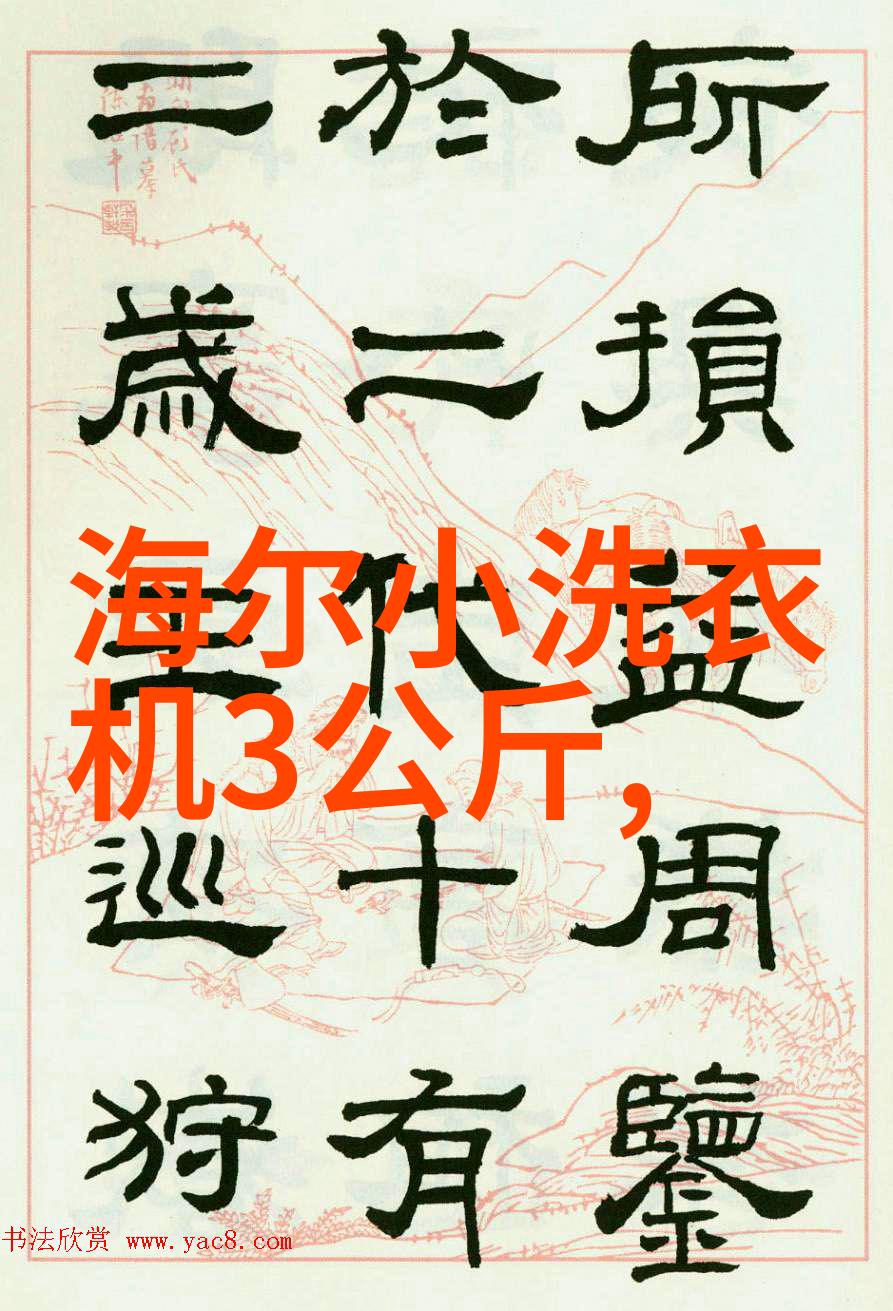 所損益周鑒
於二代十有
二歲王巡狩
海尔小洗衣
机3公斤,
书法欣赏 www.yac8.com